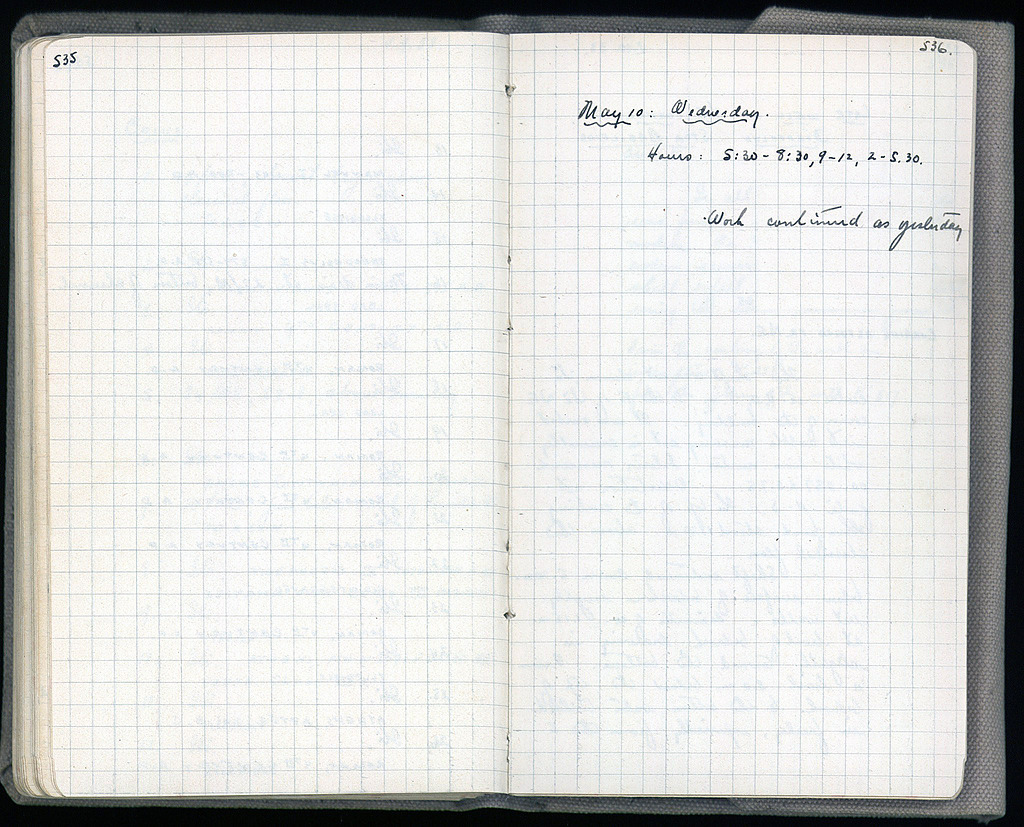 535
536.
May 10: Wednesday.
Hours: 5:30-8:30, 9-12, 2-5.30.
Work continued as yesterday